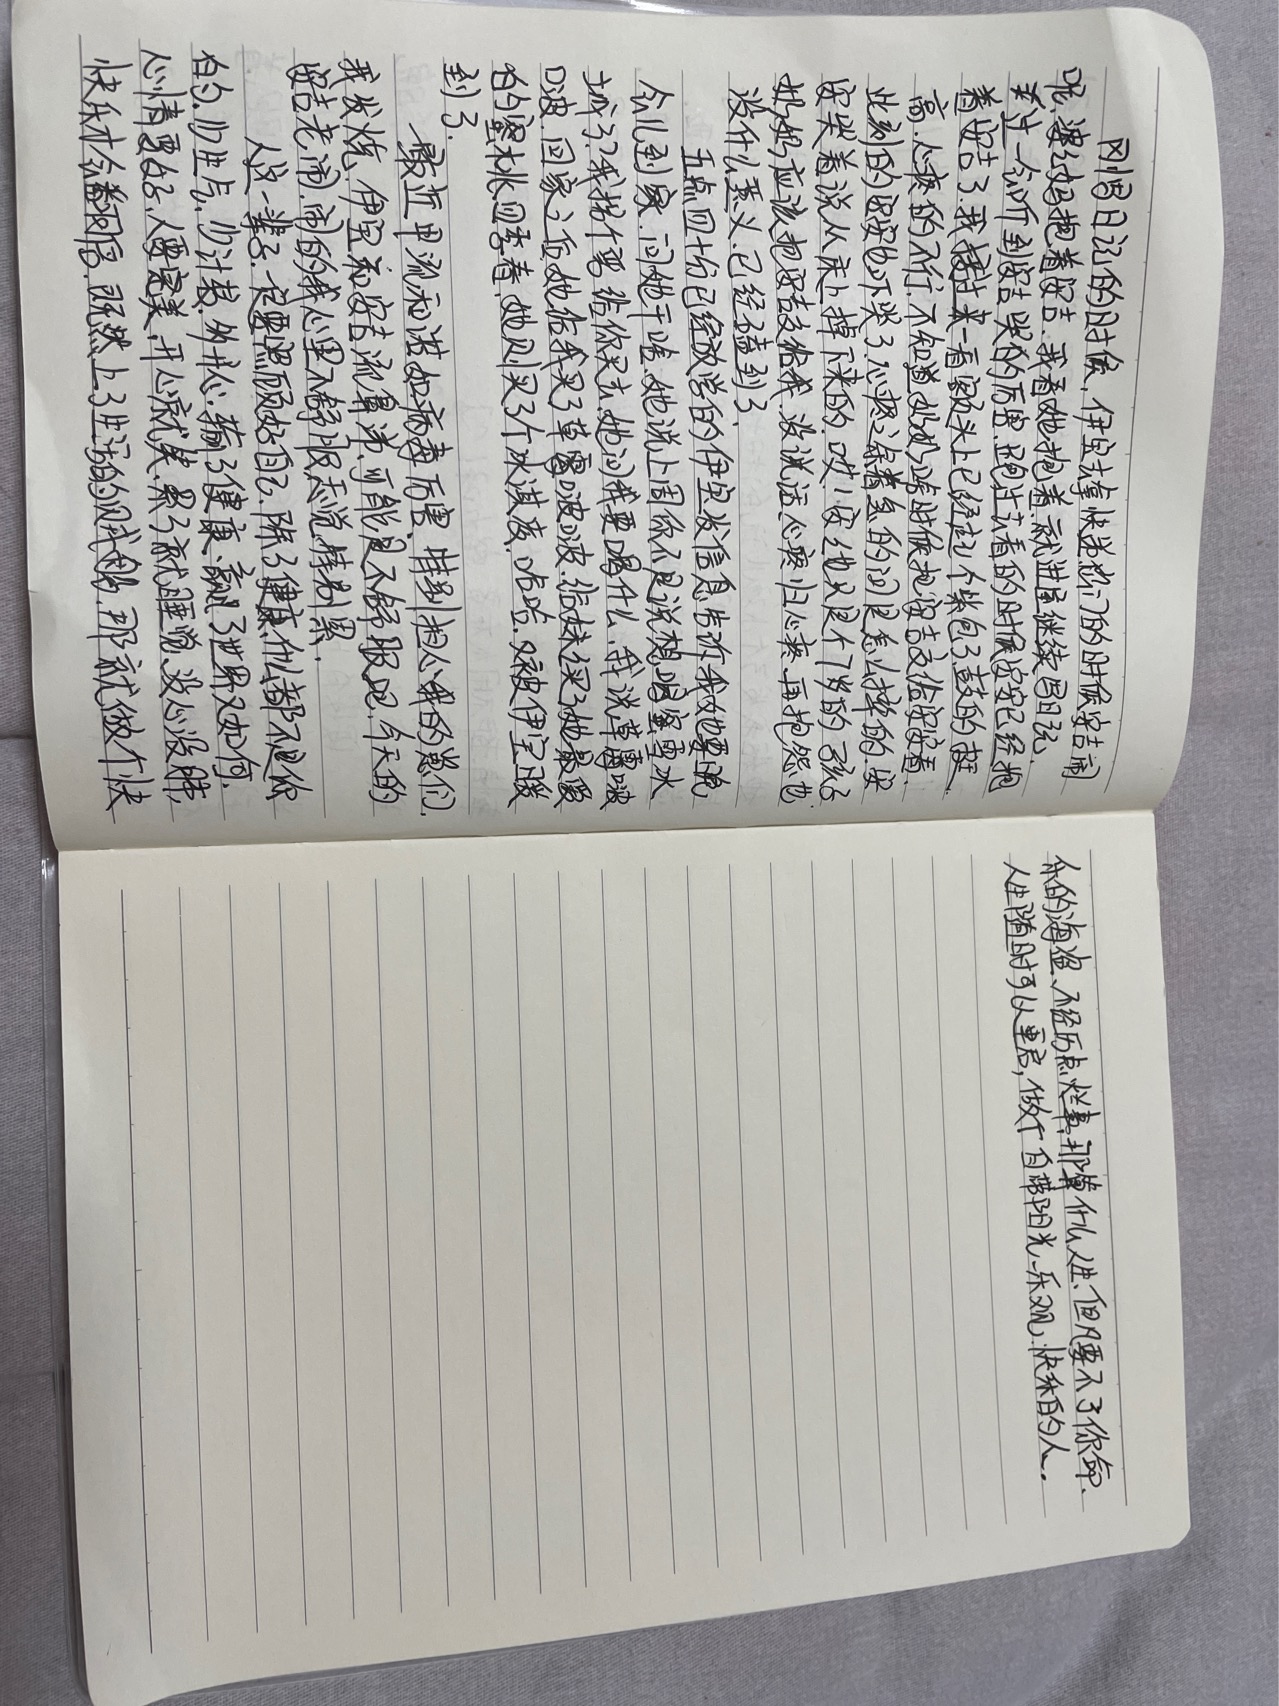 刚写日记的时候，伊宝去拿快递粉门的时候安吉闹
呢，婆婆抱着安吉，我看她抱着就进屋继续写日记.
过一会听到安吉哭的厉害，跑过去看的时候安安已经抱
着安吉了，我接过来一看额头上已经起了个紫包了鼓的挺
高，心疼的不行，不知道妈妈啥时候把安吉交给安安看，
此刻的安安也吓哭了，心疼之余着急的问是怎么掉的，安
安哭着说从床上掉下来的，哎，安安她也只是个7岁的孩子
妈妈应该把安吉交给我，没说话心疼归心疼，再抱怨也
没什么意义，已经磕到了.
五点四十分已经放学的伊宝发信息告诉我她要晚
会儿到家，问她干啥，她说上周你不是说想喝蜜雪冰
城了？我拐个弯给你买去，她问我要喝什么，我说草莓啵
啵，回家之后她给我买了草莓啵啵，给妹妹买了她最爱
的蜜桃四季春，她则买了个冰淇淋，哈哈，又被伊宝暖
到了.
最近甲流和诺如病毒厉害，特别担心我的崽们，
我发烧，伊宝和安吉流鼻涕，可能是不舒服吧，今天的
安吉老闹，闹的我心里不舒服，怎说，特别累.
人这一辈子，一定要照顾好自己，除了健康，什么都不是你
的，少生气，少计较，多开心，输了健康，赢了世界又如何，
心情要好，人要完美，开心就笑，累了就睡觉，没心没肺，
快乐才会翻倍，既然上了生活的贼船，那就做个快
乐的海盗，不经历点烂事，那算什么人生，但凡要不了你命，
人生随时可以重启，做个自带阳光、乐观、快乐的人.